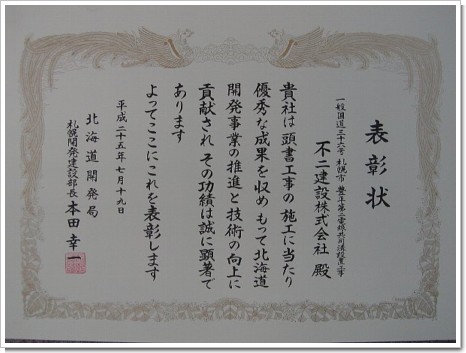 表彰状
一般国道三十六号 札幌市 豊平第二電線共同溝設置工事
不二建設株式会社 殿
貴社は頭書工事の施工に当たり
優秀な成果を収め もって北海道
開発事業の推進と技術の向上に
貢献され その功績は誠に顕著で
あります
よってここにこれを表彰します
平成二十五年七月十九日
北海道開発局
札幌開発建設部長 本田幸一